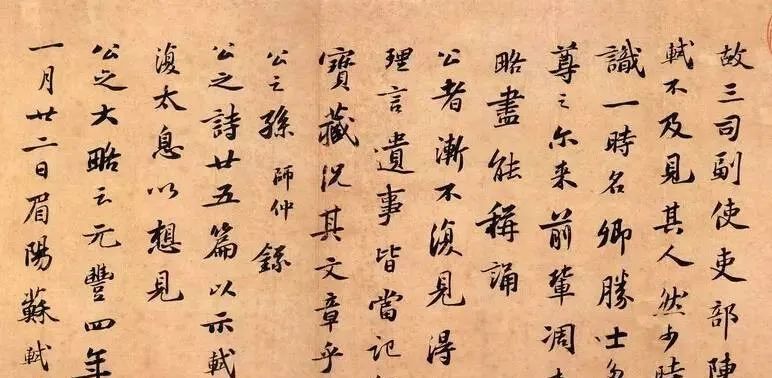 故三司副使吏部陳
軾不及見其人然少時
識一時名卿勝士多
尊之尓来前輩凋
略盡能稱誦
公者漸不復見得
理言遺事皆當記
寶藏况其文章乎
公之孫師仲錄
公之詩廿五篇以示軾
復太息以想見
公之大略云元豐四年
一月廿二日眉陽蘇軾